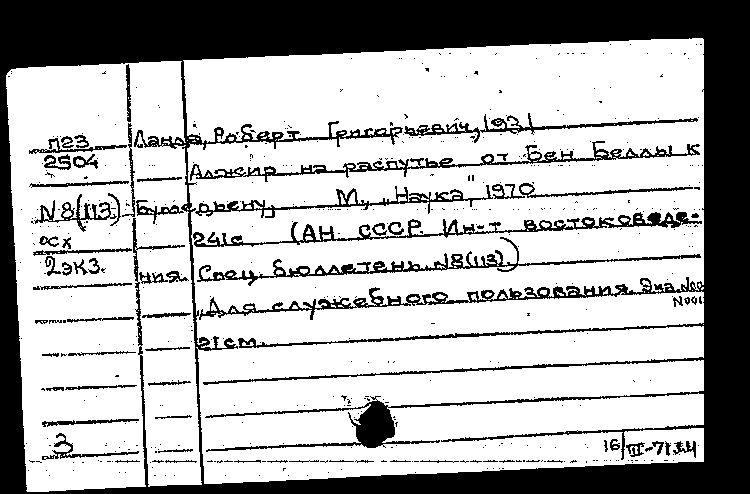 П23 Ланда, Роберт Григорьевич, 1931
2504 Алжир на распутье от Бен Беллы к
N8(113) Бумедьену, М., "Наука", 1970
осх 241с. (АН СССР. Ин-т востоковеде-
2экз. ния. Спец. бюллетень N8(113).)
"Для служебного пользования. Экз. №00
N001
21см.
3 16/III-71